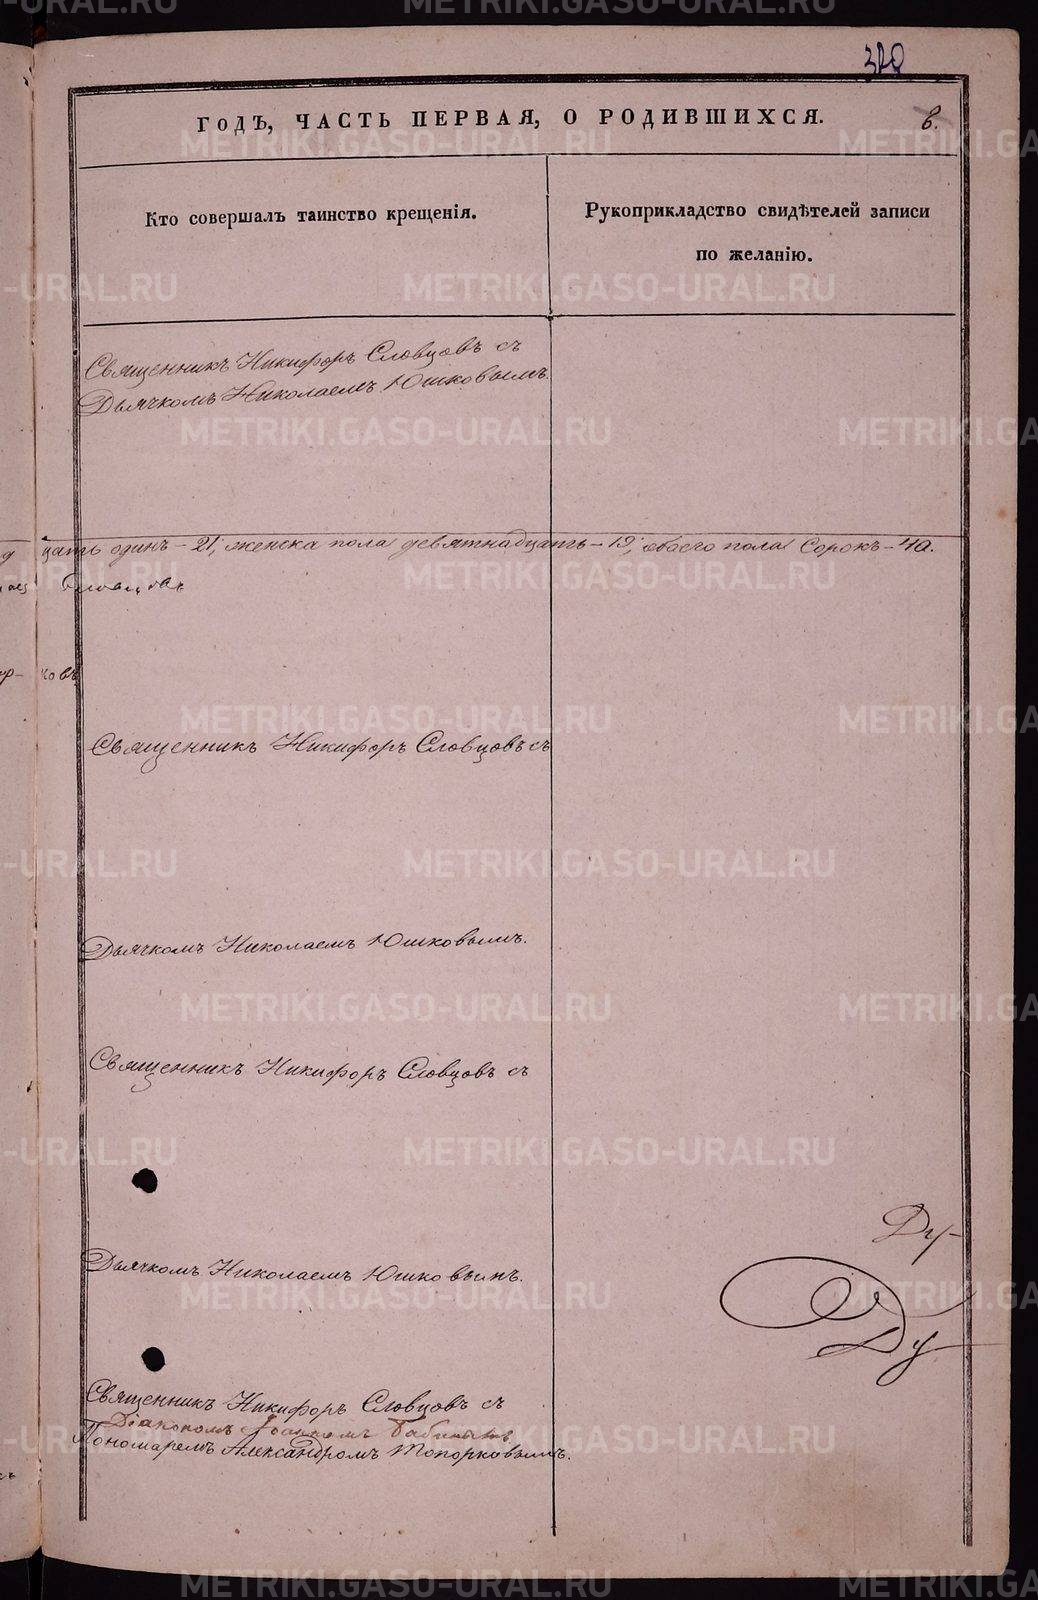 320
ГОДЪ, ЧАСТЬ ПЕРВАЯ, О РОДИВШИХСЯ.
в.
Кто совершалъ таинство крещенія.
Рукоприкладство свидѣтелей записи
по желанію.
Священникъ Никифоръ Словцовъ съ
Дьячкомъ Николаемъ Юшковымъ.
цать одинъ - 21; женска пола девятнадцать - 19; обоего пола Сорокъ - 40.
ковъ
Священникъ Никифоръ Словцовъ съ
Дьячкомъ Николаемъ Юшковымъ.
Священникъ Никифоръ Словцовъ съ
Дьячкомъ Николаемъ Юшковымъ.
Ду-
Ду
Священникъ Никифоръ Словцовъ съ
Діакономъ Іоанномъ Бабинымъ
Пономаремъ Александромъ Топорковымъ.
METRIKI.GASO-URAL.RU